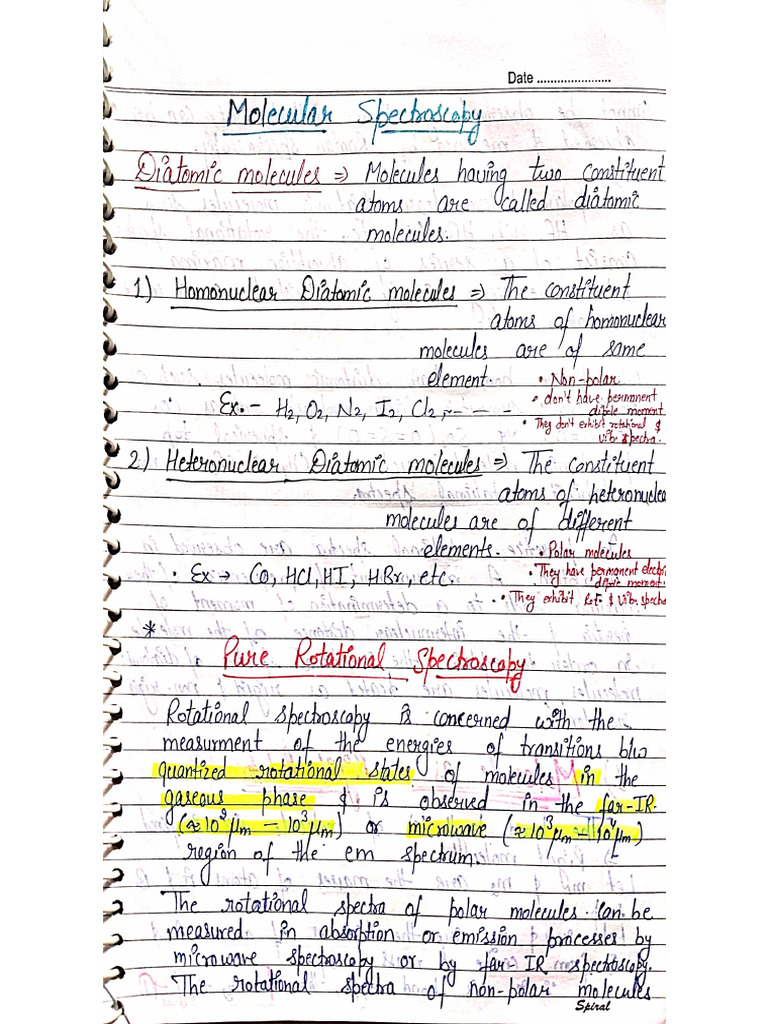 Date ......................
Molecular Spectroscopy
Diatomic molecules ⇒ Molecules having two constituent
atoms are called diatomic
molecules.
1) Homonuclear Diatomic molecules ⇒ The constituent
atoms of homonuclear
molecules are of same
element. • Non-polar
Ex.- H2, O2, N2, I2, Cl2, - - - -
• don't have permanent
dipole moment
• They don't exhibit rotational &
vib spectra.
2) Heteronuclear Diatomic molecules ⇒ The constituent
atoms of heteronuclea
molecules are of different
elements. • Polar molecules
• Ex → Co, HCl, HI, HBr, etc.
• They have permanent electric
dipole moment.
• They exhibit Rot. & vib. spectra
*
Pure Rotational Spectroscopy
Rotational spectroscopy is concerned with the
measurment of the energies of transitions b/w
quantized rotational states of molecules in the
gaseous phase & is observed in the far-IR
(≈10² μm – 10³ μm) or microwave (≈10³ μm – 10⁴ μm)
region of the em spectrum.
The rotational spectra of polar molecules can be
measured in absorption or emission processes by
microwave spectroscopy or by far-IR spectroscopy.
The rotational spectra of non-polar molecules
Spiral